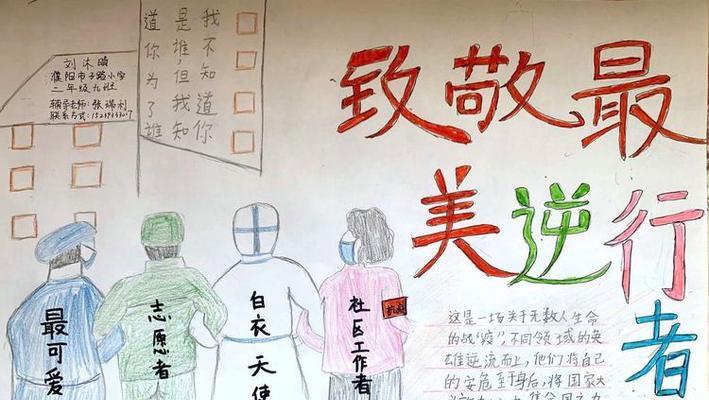 刘沐晴
濮阳市子路小学
二年级九班
辅导老师：张瑞利
我不知道你
是谁，但我知
道你为了谁
致敬最
美逆行
者
最可爱
志愿者
白衣天使
社区工作者
抗疫
这是一场关于无数人生命
的战"疫"，不同领域的英
雄逆流而上，他们将自己
的安危至于身后，将国家大